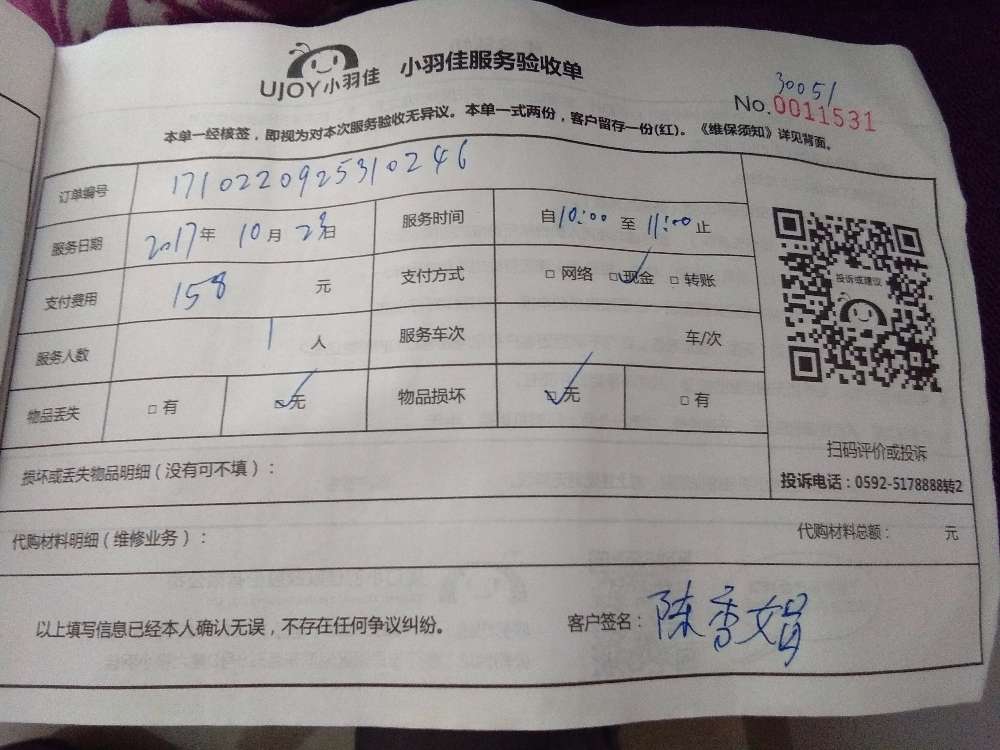 UJOY小羽佳 小羽佳服务验收单
30051
No.0011531
本单一经核签，即视为对本次服务验收无异议。本单一式两份，客户留存一份(红)。《维保须知》详见背面。
订单编号 1710220925310246
服务日期 2017年 10月 28日 服务时间 自10:00 至 11:00止
支付费用 158 元 支付方式 □ 网络 ☑现金 □ 转账
投诉或建议
服务人数 1 人 服务车次 车/次
物品丢失 □ 有 ☑无 物品损坏 ☑无 □ 有
扫码评价或投诉
投诉电话：0592-5178888转2
损坏或丢失物品明细（没有可不填）：
代购材料明细（维修业务）： 代购材料总额： 元
以上填写信息已经本人确认无误，不存在任何争议纠纷。 客户签名：陈香娟